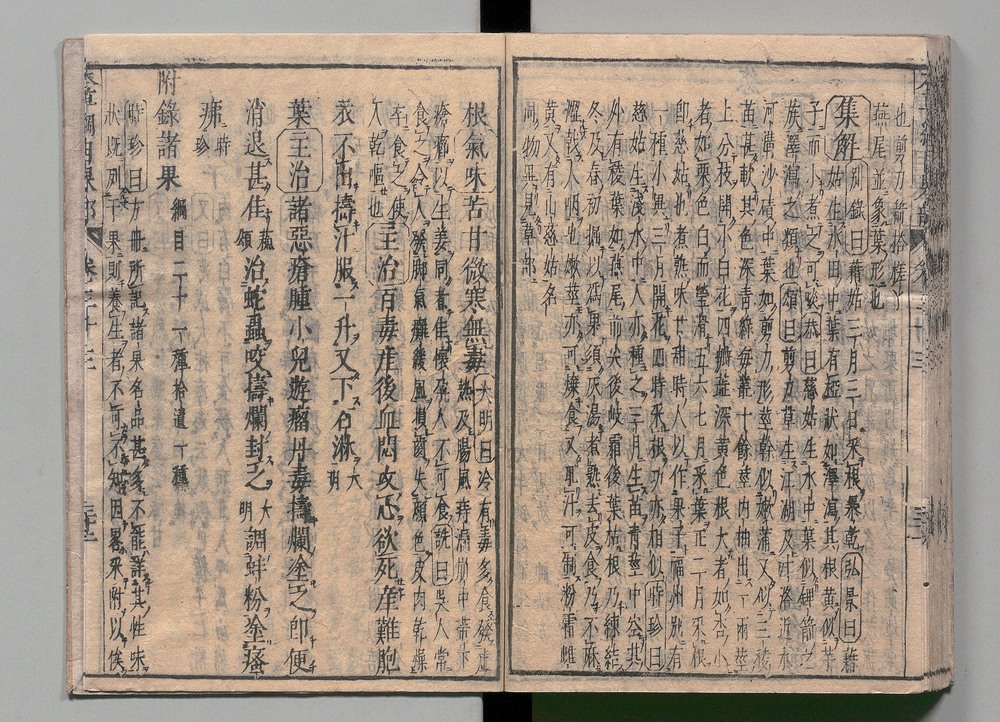 也剪刀箭搭槎丫
燕尾並象葉形也
集解 別錄曰藉姑三月三日采根暴乾弘景曰藉
姑生水田中葉有椏狀如澤瀉其根黃似芋
子而小煮之可啖恭曰慈姑生水中葉似錍箭之
鏃澤瀉之類也頌曰剪刀草生江湖及汴洛近水
河溝沙磧中葉如剪刀形莖幹似嫩蒲又似三稜
苗甚軟其色深青綠每叢十餘莖內抽出一兩莖
上分枝開小白花四瓣蕊深黃色根大者如杏小
者如栗色白而瑩滑五六七月采葉正二月采根
即慈姑也煮熟味甘甜時人以作果子福州別有
一種小異三月開花四時采根功亦相似時珍曰
慈姑生淺水中人亦種之三月生苗青莖中空其
外有稜葉如燕尾前尖後岐霜後葉枯根乃練結
冬及春初掘以爲果須灰湯煮熟去皮食乃不麻
澀戟人咽也嫩莖亦可煠食又取汁可制粉霜雌
黃又有山慈姑名
同物異見草部
根氣味苦甘微寒無毒 大明曰冷有毒多食發虛
熱及腸風痔漏崩中帶下
瘡癤以生姜同煮佳懷孕人不可食詵曰吳人常
食之令人發脚氣癱緩風損齒失顏色皮肉乾燥
卒食之使
人乾嘔也 主治百毒産後血悶攻心欲死産難胞
衣不出擣汁服一升又下石淋 大明
葉主治諸惡瘡腫小兒遊瘤丹毒擣爛塗之即便
消退甚佳 蘇頌 治蛇蟲咬擣爛封之 大明 調蚌粉塗瘙
疿 時珍
附錄諸果 綱目二十一種拾遺一種
時珍曰方冊所記諸果名品甚多不能詳其性味
狀既列于果則養生者不可不知因畧采附以俟